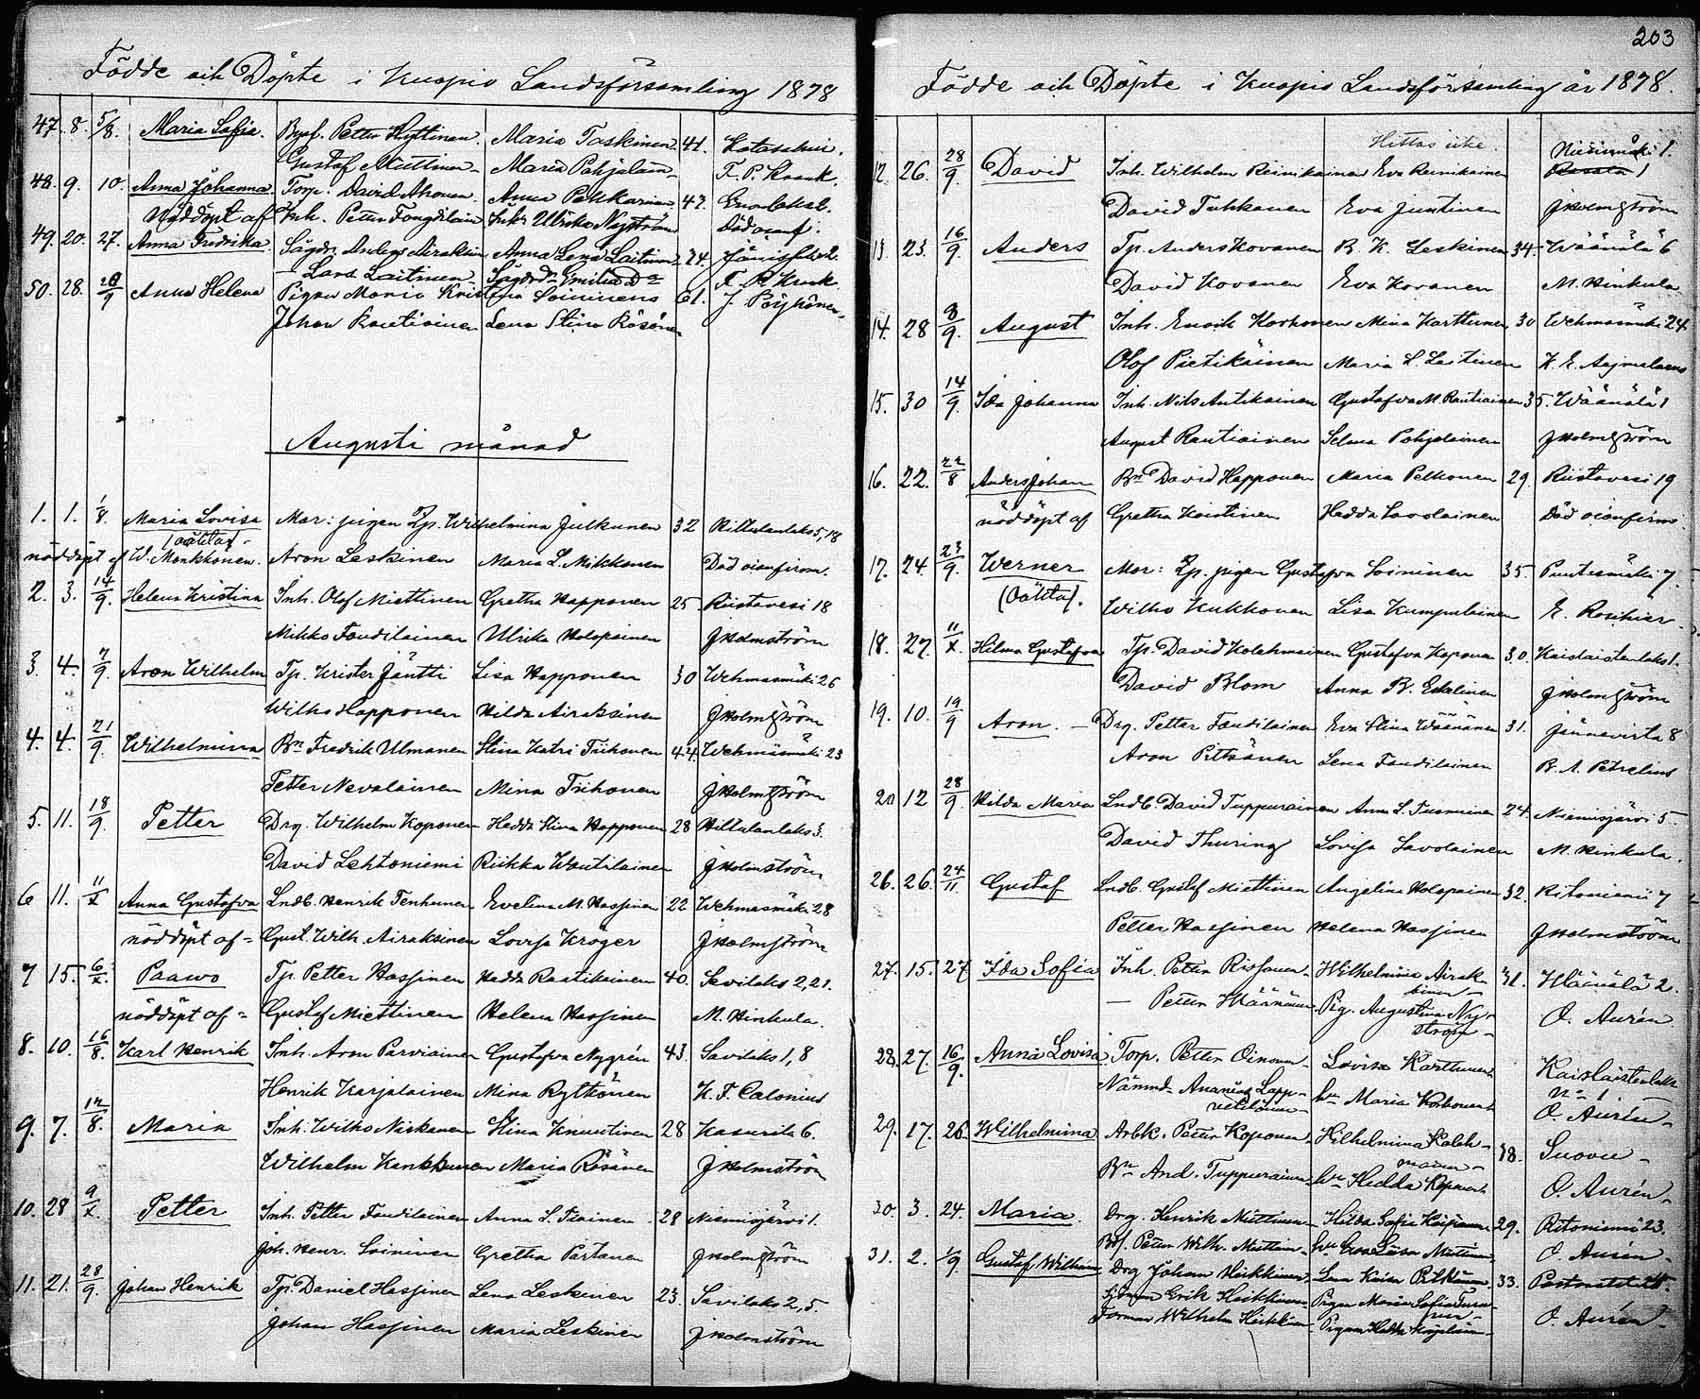 Födde och Döpte i Kuopio Landsförsamling 1878
47. 8. 5/8. Maria Sofia. Petter Hyttinen. Maria Taskinen. 41.
Gustaf Miettinen Maria Pohjalain
48. 9. 10. Anna Johanna. Torp. David Ahonen. Anna Pekkarinen 47.
Nöddöpt af Inh. Petter Ulrika Nyström
49. 20. 27. Anna Fredrika. Anna Lena Laitinen 24.
Lars Laitinen
50. 28. Anna Helena Pigan Maria Kristina Soininens 61.
Johan Rautiainen Lena Stina Räsänen
Augusti månad
1. 1. 1/8. Maria Lovisa Mor: pigan Wilhelmina Julkunen 32
(oäkta)
nöddöpt af W. Monkkonen. Aron Leskinen Maria L. Mikkonen
2. 3. 14/9. Helena Kristina Inh. Olof Miettinen Gretha Happonen 25 Riistavesi 18
Mikko Ulrika Holopainen J Holmström
3. 4. 7/9. Aron Wilhelm Tp. Krister Jäntti Lisa Happonen 30 Wehmasmäki 26
Wilho Happonen Hilda Airaksinen J Holmström
4. 4. 21/9. Wilhelmina Bn Fredrik Ulmanen Stina Katri Tiihonen 44. Wehmasmäki 23
Petter Nevalainen Mina Tiihonen J Holmström
5. 11. 18/9. Petter Drg. Wilhelm Koponen Hedda Stina Happonen 28 Hiltulanlaks 3.
David Lehtoniemi Riikka Woutilainen J Holmström
6 11. 11/X Anna Gustafva Lndb. Henrik Tenhunen Evelina M. Hassinen 22 Wehmasmäki 28
nöddöpt af = Gust. Wilh. Airaksinen Lovisa Kröger J Holmström
7 15. 6/X. Paavo Tp. Petter Hassinen Hedda Rautiainen 40. Savilaks 2,21.
nöddöpt af = Gustaf Miettinen Helena Hassinen M. Hinkula.
8. 10. 16/8. Karl Henrik Inh. Aron Parviainen Gustafva Nygrén 43. Savilaks 1,8
Henrik Karjalainen Mina Rytkönen K. F. Calonius
9. 7. 12/8. Maria Inh. Wilho Niskanen Stina Knuutinen 28 Kasurila 6.
Wilhelm Kankkunen Maria Räsänen J Holmström
10. 28 9/X. Petter Inh. Petter Anna L. Tiainen 28 Niemisjärvi 1.
Joh. Henr. Soininen Gretha Partanen J Holmström
11. 21. 28/9. Johan Henrik Tp. Daniel Hassinen Lena Leskinen 23. Savilaks 2,5.
Johan Hassinen Maria Leskinen J Holmström
203
Födde och Döpte i Kuopio Landsförsamling år 1878.
Hittas icke.
12. 26. 28/9. David Inh. Wilhelm Reinikainen Eva Reinikainen
David Tukkanen Eva Juntinen J Holmström
13. 23. 16/9. Anders Tp. Anders Kovanen B. K. Leskinen 34. Wäänälä 6
David Kovanen Eva Kovanen M. Hinkula
14. 28 8/9. August Inh. Enok Korhonen Mina Karttunen 30 Wehmasmäki 24.
Olof Pietikäinen Maria L. Laitinen
15. 30 14/9. Ida Johanna Inh. Nils Antikainen Gustafva M. Rautiainen 35. Wäänälä 1
August Rautiainen Selma Pohjolainen J Holmström
16. 22. 22/8 Anders Johan Bn David Happonen Maria Pelkonen 29. Riistavesi 19
nöddöpt af Gretha Koistinen Hedda Savolainen
17. 24. 23/9. Werner Mor: pigan Gustafva Soininen 35. 7.
(Oäkta). Wilho Kukkonen Lisa Kumpulainen
18. 27. 11/X. Hilma Gustafva Tp. David Kolehmainen Gustafva Koponen 30. Kaislastenlaks 1.
David Blom Anna B. Eskelinen J Holmström
19. 10. 19/9 Aron. Drg. Petter Eva Stina Väänänen 31. Jännevirta 8
Aron Pitkänen Lena B. A. Petrelius
20 12 28/9. Hilda Maria Lndb. David Tuppurainen Anna L. 24. Niemisjärvi 5.
David Thuring Lovisa Savolainen M. Hinkula.
26. 26. 24/11 Gustaf Lndb. Gustaf Miettinen Angelina Holopainen 32. Ritoniemi 7
Petter Hassinen Helena Hassinen J Holmström
27. 15. 27 Ida Sofia Inh. Petter Rissanen Wilhelmina Airaksinen 31. Wäänälä 2.
Petter Pig. Augustina Nyström O. Aurén
28. 27. 16/9. Anna Lovisa Torp. Petter Oinonen Lovisa Karttunen Kaislastenlaks
Nämnd. Ananias Lappveteläinen hu Maria Korhonen No 1 O. Aurén
29. 17. 26. Wilhelmina Arbk. Petter Koponen Wilhelmina Kolehmainen 38.
Bn And. Tuppurainen hu Hedda Koponen O. Aurén
30. 3. 24. Maria Drg. Henrik Miettinen Hilda Sofia 29. Ritoniemi 23.
Petter Wilh. Miettinen hu Eva Lisa Miettinen O. Aurén
31. 2. 1/9 Gustaf Wilhelm Drg Johan Heikkinen Lena Kaisa Pitkänen. 33.
Erik Heikkinen Pigan Maria Sofia
Wilhelm Heikkinen Pigan Hedda O. Aurén